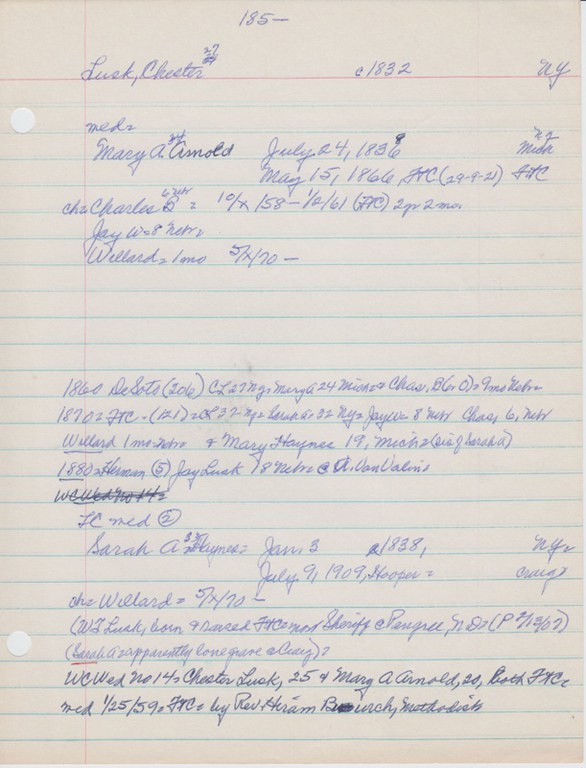 185—
27
Lusk, Chester c1832 NY
med=
24 NY
Mary A. Arnold July 24, 1836 Mich
May 15, 1866, FTC (29-9-21) FTC
6 Nebr
ch= Charles B = 10/x/58 – 1/2/61 (FTC) 2yr 2mo.
Jay W=8 Nebr=
Willard= 1mo 5/x/70 —
1860 DeSoto (206) CL 27 NY= Mary A 24 Mich= & Chas. B (or O)= 9mo Nebr=
1870= FTC - (121)= CL 37 NY= Sarah A= 32 NY= Jay W= 8 Nebr Chas, 6, Nebr
Willard 1mo=Nebr & Mary Haynes 19, Mich= (sis of Sarah A)
1880= Herman (5) Jay Lusk 18 Nebr= c A. Van Valin's
WC Wed No 14=
FC med (2)
32
Sarah A= Haynes= Jan. 3 c1838, NY=
July 9, 1909, Hooper= Craig?
ch= Willard = 5/x/70 —
(WJ Lusk, born & raised FTC= now Sheriff c Pengree, ND= (P 2/13/07)
(Sarah A= apparently lone grave c Craig)=
WC Wed No 14= Chester Lusk, 25 & Mary A Arnold, 20, both FTC=
med 1/25/59= FTC= by Rev. Hiram Burch, Methodist